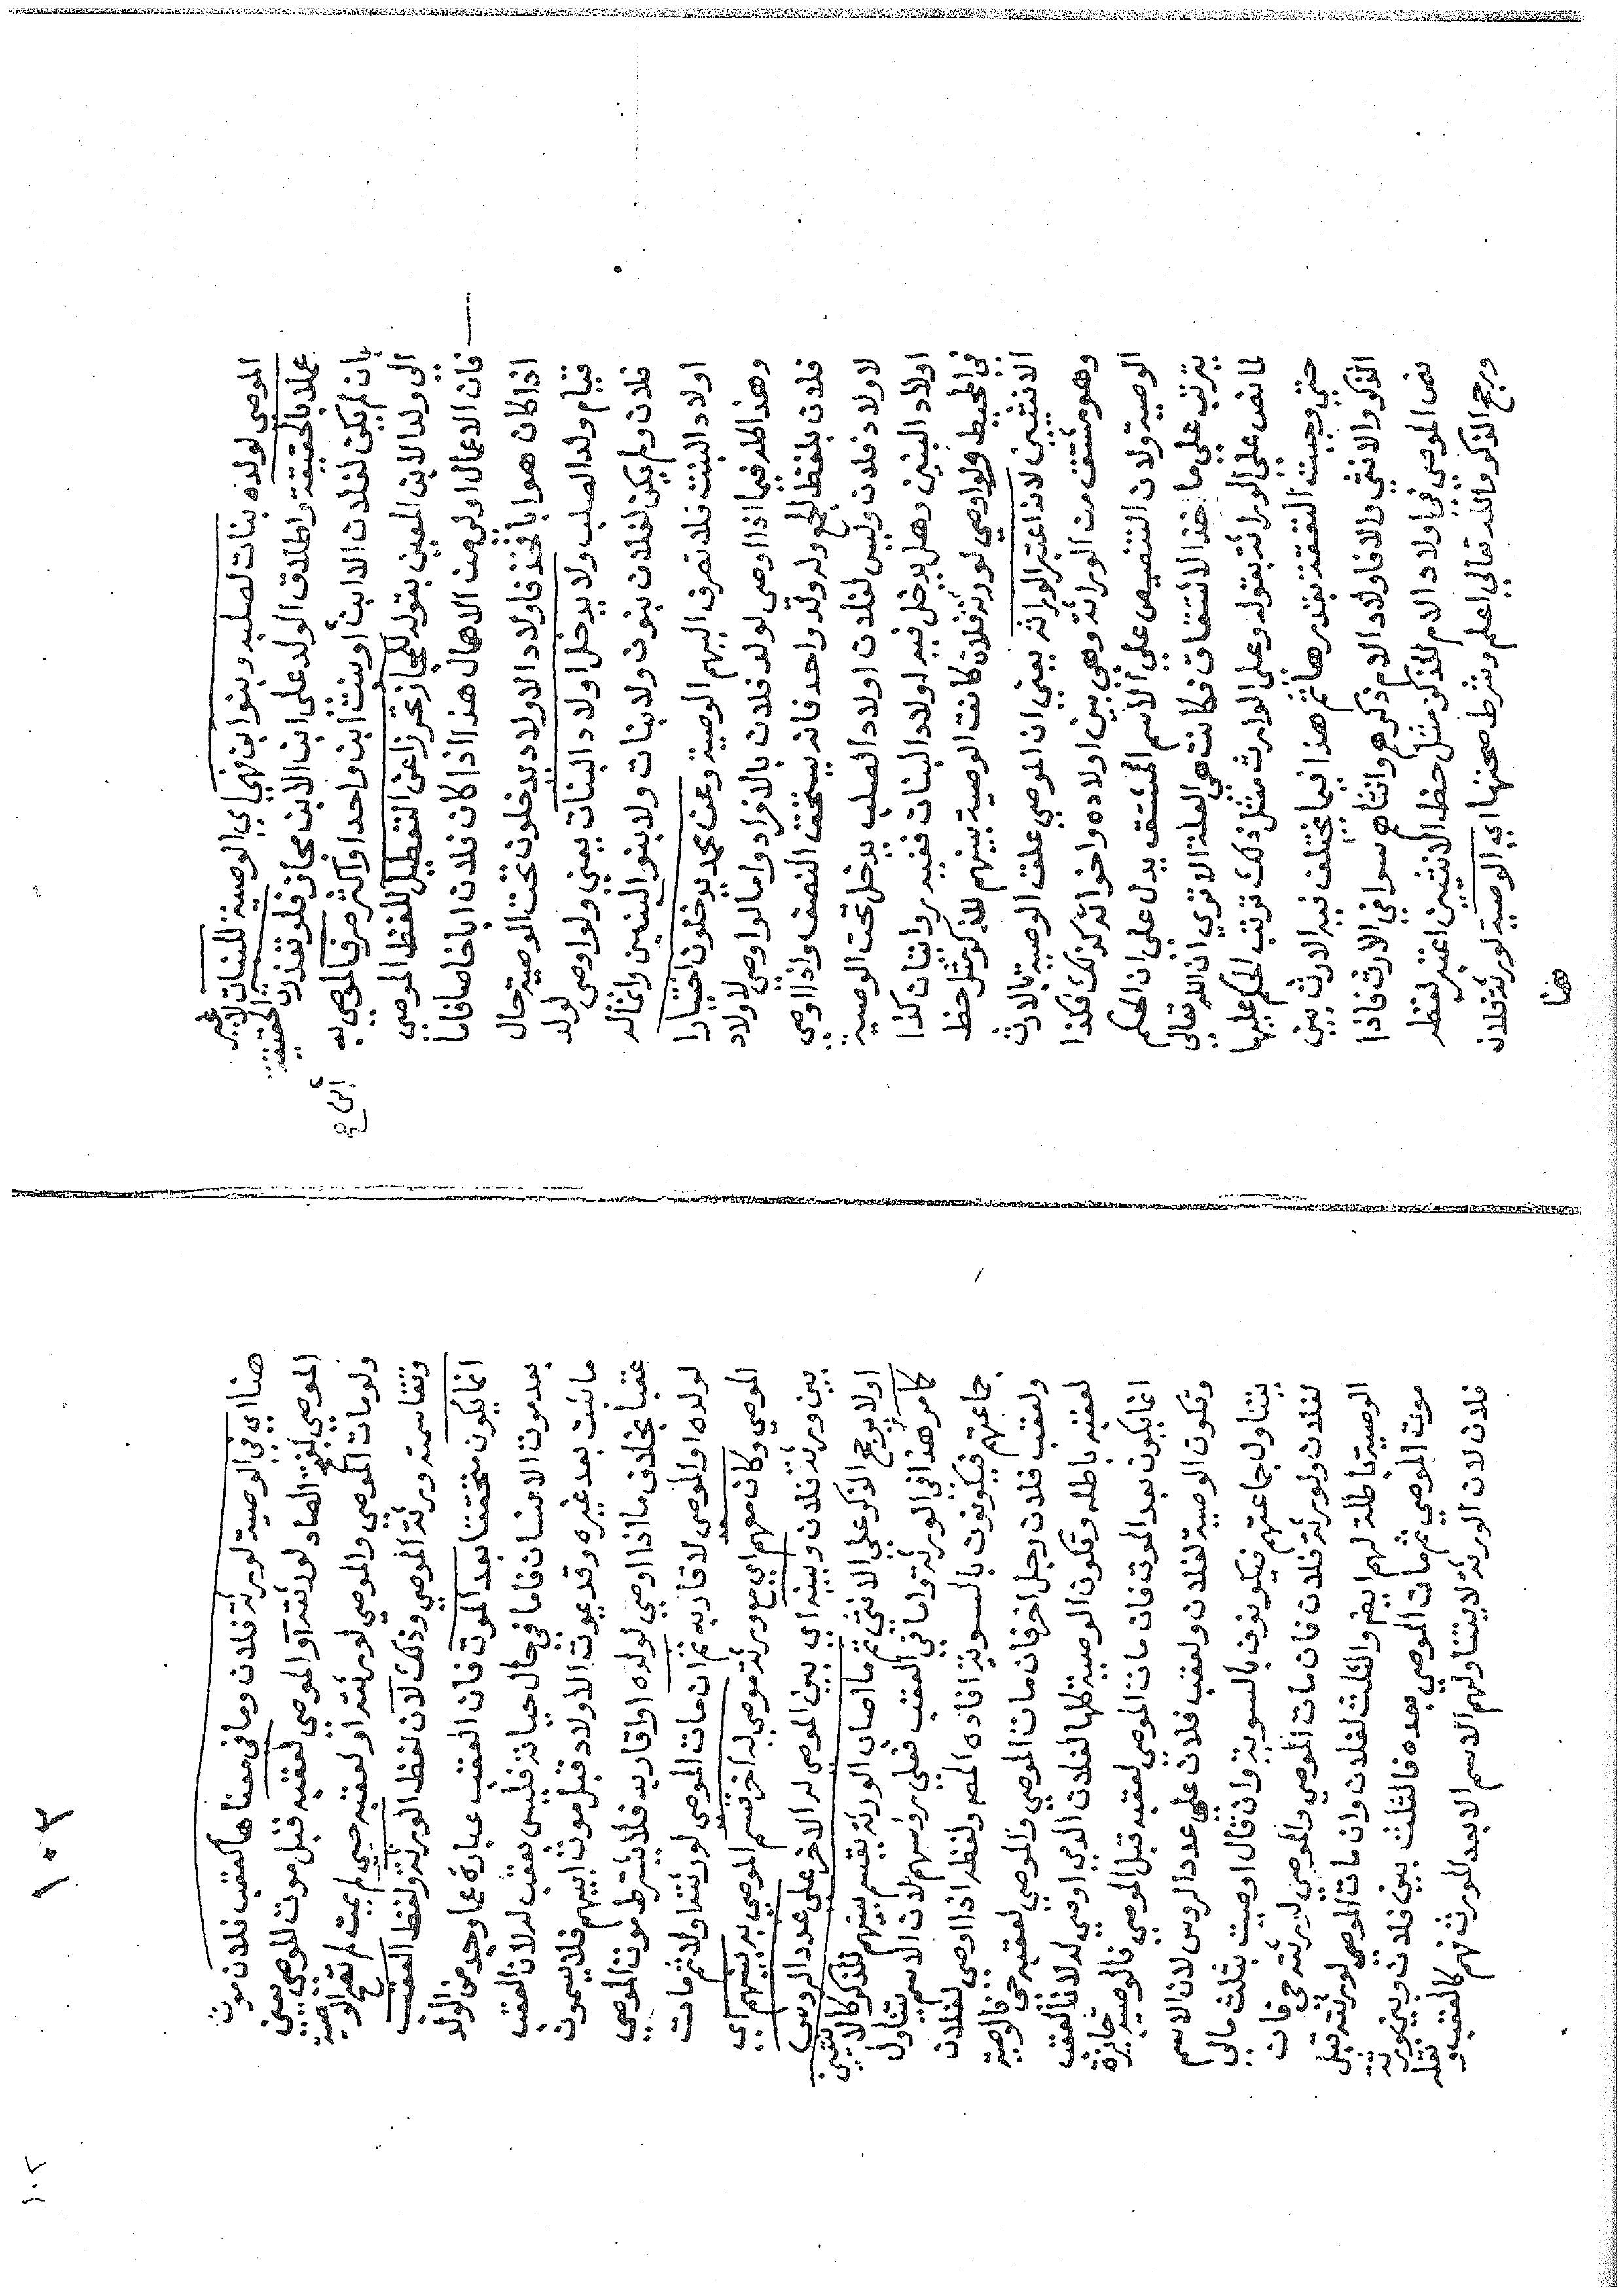 الموصي لولده بنات لصلبه وبنوا ابن فهي اي الوصية للبنات لا غير
عملا بالحقيقة واطلاق الولد على ابن الابن مجاز فلو تعذرت الحقيقة
بان لم يكن لفلان الا ابن ابن او بنت ابن واحدا او اكثر صرف الموصي به
الى ولد الابن المعين بقوله للمجاز تحرزا عن التعطيل للفظ الموصي
فان الاعمال اولى من الاهمال هذا اذا كان فلان ابا خاصا فاما
اذا كان هو ابا فخذ فاولاد الاولاد يدخلون تحت الوصية حال
قيام ولد الصلب ولا يدخل اولاد البنات يعني ولو اوصى لولد
فلان ولم يكن لفلان بنون ولا بنات ولا بنوا البنين وانما له
اولاد البنت فلا تصرف اليهم الوصية وعن محمد يدخلون اختيارا
وهذا كله فيما اذا اوصى لولد فلان بالافراد واما لو اوصى لاولاد
فلان بلفظ الجمع وله ولد واحد فانه يستحق النصف واذا اوصى
لاولاد فلان وليس لفلان اولاد الصلب يدخل تحت الوصية
اولاد البنين وهل يدخل فيه اولاد البنات ففيه روايتان كذا
في المحيط ولو اوصي لورثة فلان كانت الوصية بينهم للذكر مثل حظ
الانثيين لانه اعتبر الوراثة يعني ان الموصي علق الوصية بالارث
وهو مشتق من الوراثة وهي بين اولاده واخواته كذلك فكذا
الوصية ولان التنصيص على الاسم المشتق يدل على ان الحكم
يترتب على ماخذ الاشتقاق فكانت هي العلة الا تري ان الله تعالى
لما نص على الوراثة بقوله وعلى الوارث مثل ذلك ترتب الحكم عليها
حتي وجبت النفقة بقدرها ثم هذا فيما يختلف فيه الارث بين
الذكر والانثي والا فاولاد الام ذكرهم وانثاهم سوا في الارث فاذا
نص الموصي في اولاد الام للذكر مثل حظ الانثيين اعتبر لفظه
ويرجح الذكر والله تعالى اعلم وشرط صحتها اي الوصية لورثة فلان
هنا
١٠٣
هنا اي في الوصية لورثة فلان وما في معناها كعقب فلان موت
الموصي له بفتح الصاد لورثته او الموصي لعقبه قبل موت الموصي يعني
ولو مات الموصي والموصي لورثته او لعقبه حي لم يمت لم تصح الوصية
وتقاسمته ورثة الموصي وذلك لان لفظ الورثة ولفظ العقب
انما يكون متحققا بعد الموت فان العقب عبارة عما وجد من الولد
بعد موت الانسان فاما في حال حياته فليس بعقب له لان العقب
ما يثبت بعد غيره وقد يموت الاولاد قبل موت ابيهم فلا يسمون
عقبا بخلاف ما اذا اوصي لولده او اقاربه فلا يشترط موت الموصي
لولده او الموصى لاقاربه ثم ان مات الموصى لورثته اولا ثم مات
الموصي وكان معهم اي مع ورثة موصي له اخر يسم الموصي به بينهم اي
بين ورثة فلان وبينه اي بين الموصى له الاخر على عدد الروس
اولا يرجح الذكر علي الانثى ثم ما اصاب الورثة يقسم بينهم للذكر كالانثيين
كما مر هذا في الورثة واما في العقب فعلي روسهم لان الاسم يتناول
جماعتهم فيكونون بالسوية افاده المصـ ولفظه اذا اوصي لفلان
ولعقب فلان رجل اخر فان مات الموصي والموصي لعقبه حي فالوصية
لعقبه باطله وتكون الوصية كلها لفلان الذي اوصي له لان العقب
انما يكون بعد الموت فان مات الموصي لعقبه قبل الموصي فالوصية جائزة
وتكون الوصية لفلان ولعقب فلان علي عدد الروس لان الاسم
يتناول جماعتهم فيكونون بالسوية وان قال اوصيت بثلث مالي
لفلان ولورثة فلان فان مات الموصي والموصي لورثته حي فان
الوصية باطلة لهم ايضـ والثلث لفلان وان مات الموصي لورثته قبل
موت الموصي ثم مات الموصي بعده فالثلث بين فلان وبين ورثة
فلان لان الورثة لا يتناولهم الاسم الا بعد المورث فهم كالعقب
١٠٢